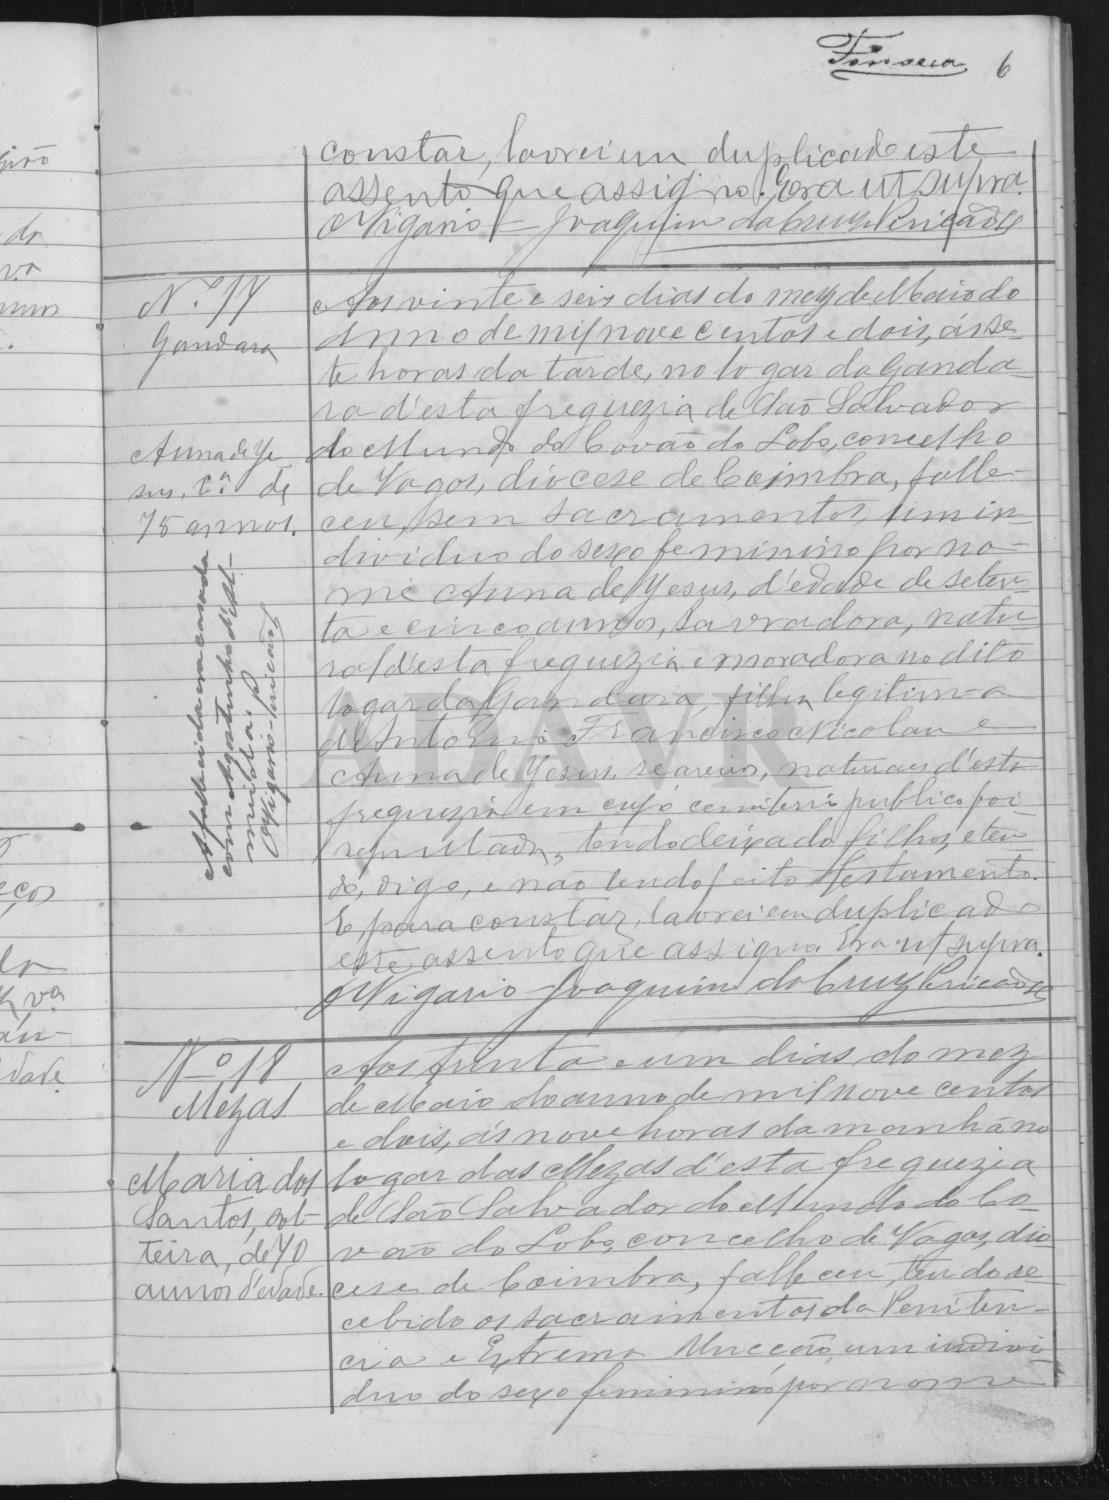 Fonseca 6
constar, lavrei em duplicado este
assento que assigno. Era ut supra.
O Vigario Joaquim da Cruz Pericão
N.º 17
Gandara
Anna de Je
sus, C.da de
75 annos.
A fallecida era casada
com Agostinho d'Al-
meida.
O Vigario Pericão
Aos vinte e seis dias do mez de Maio do
anno de mil nove centos e dois, ás se-
te horas da tarde, no logar da Ganda-
ra d'esta freguezia de São Salvador
do Mundo do Covão do Lobo, concelho
de Vagos, diocese de Coimbra, falle-
ceu, sem sacramentos, um in-
dividuo do sexo feminino por no-
me Anna de Jesus, d'edade de seten-
ta e cinco annos, lavradora, natu
ral d'esta freguezia e moradora no dito
logar da Gandara, filha legitima
de Antonio Francisco Nicolau e
Anna de Jesus, seareiros, naturaes d'esta
freguezia em cujo cemiterio publico foi
sepultada, tendo deixado filhos, e ten
do, digo, e não tendo feito testamento.
E para constar, lavrei em duplicado
este assento que assigno. Era ut supra.
O Vigario Joaquim da Cruz Pericão
Nº 18
Mezas
Maria dos
Santos, sol-
teira, de 70
annos d'edade.
Aos trinta e um dias do mez
de Maio do anno de mil nove centos
e dois, ás nove horas da manhã no
logar das Mezas d'esta freguezia
de São Salvador do Mundo do Co-
vão do Lobo, concelho de Vagos, dio
cese de Coimbra, falleceu, tendo re
cebido os sacramentos da Peniten-
cia e Extrema Uncção, um indivi-
duo do sexo feminino por nome
ADAVR